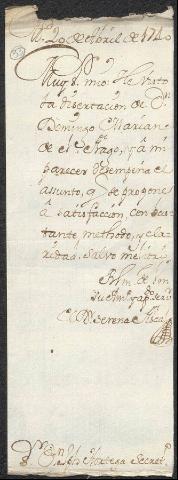 M.d 20 de Abril de 1740
Muy S.r mio: He visto
la disertacion de D.n
Domingo Mariano
de el S.to Yago, y a mi
parecer desempeña el
assunto, q.e se propone
a satisfaccion, con bas-
tante methodo, y cla-
ridad, salvo meliori.
Blm de vm
su
S.or D.n Julo Hortega Secret.o